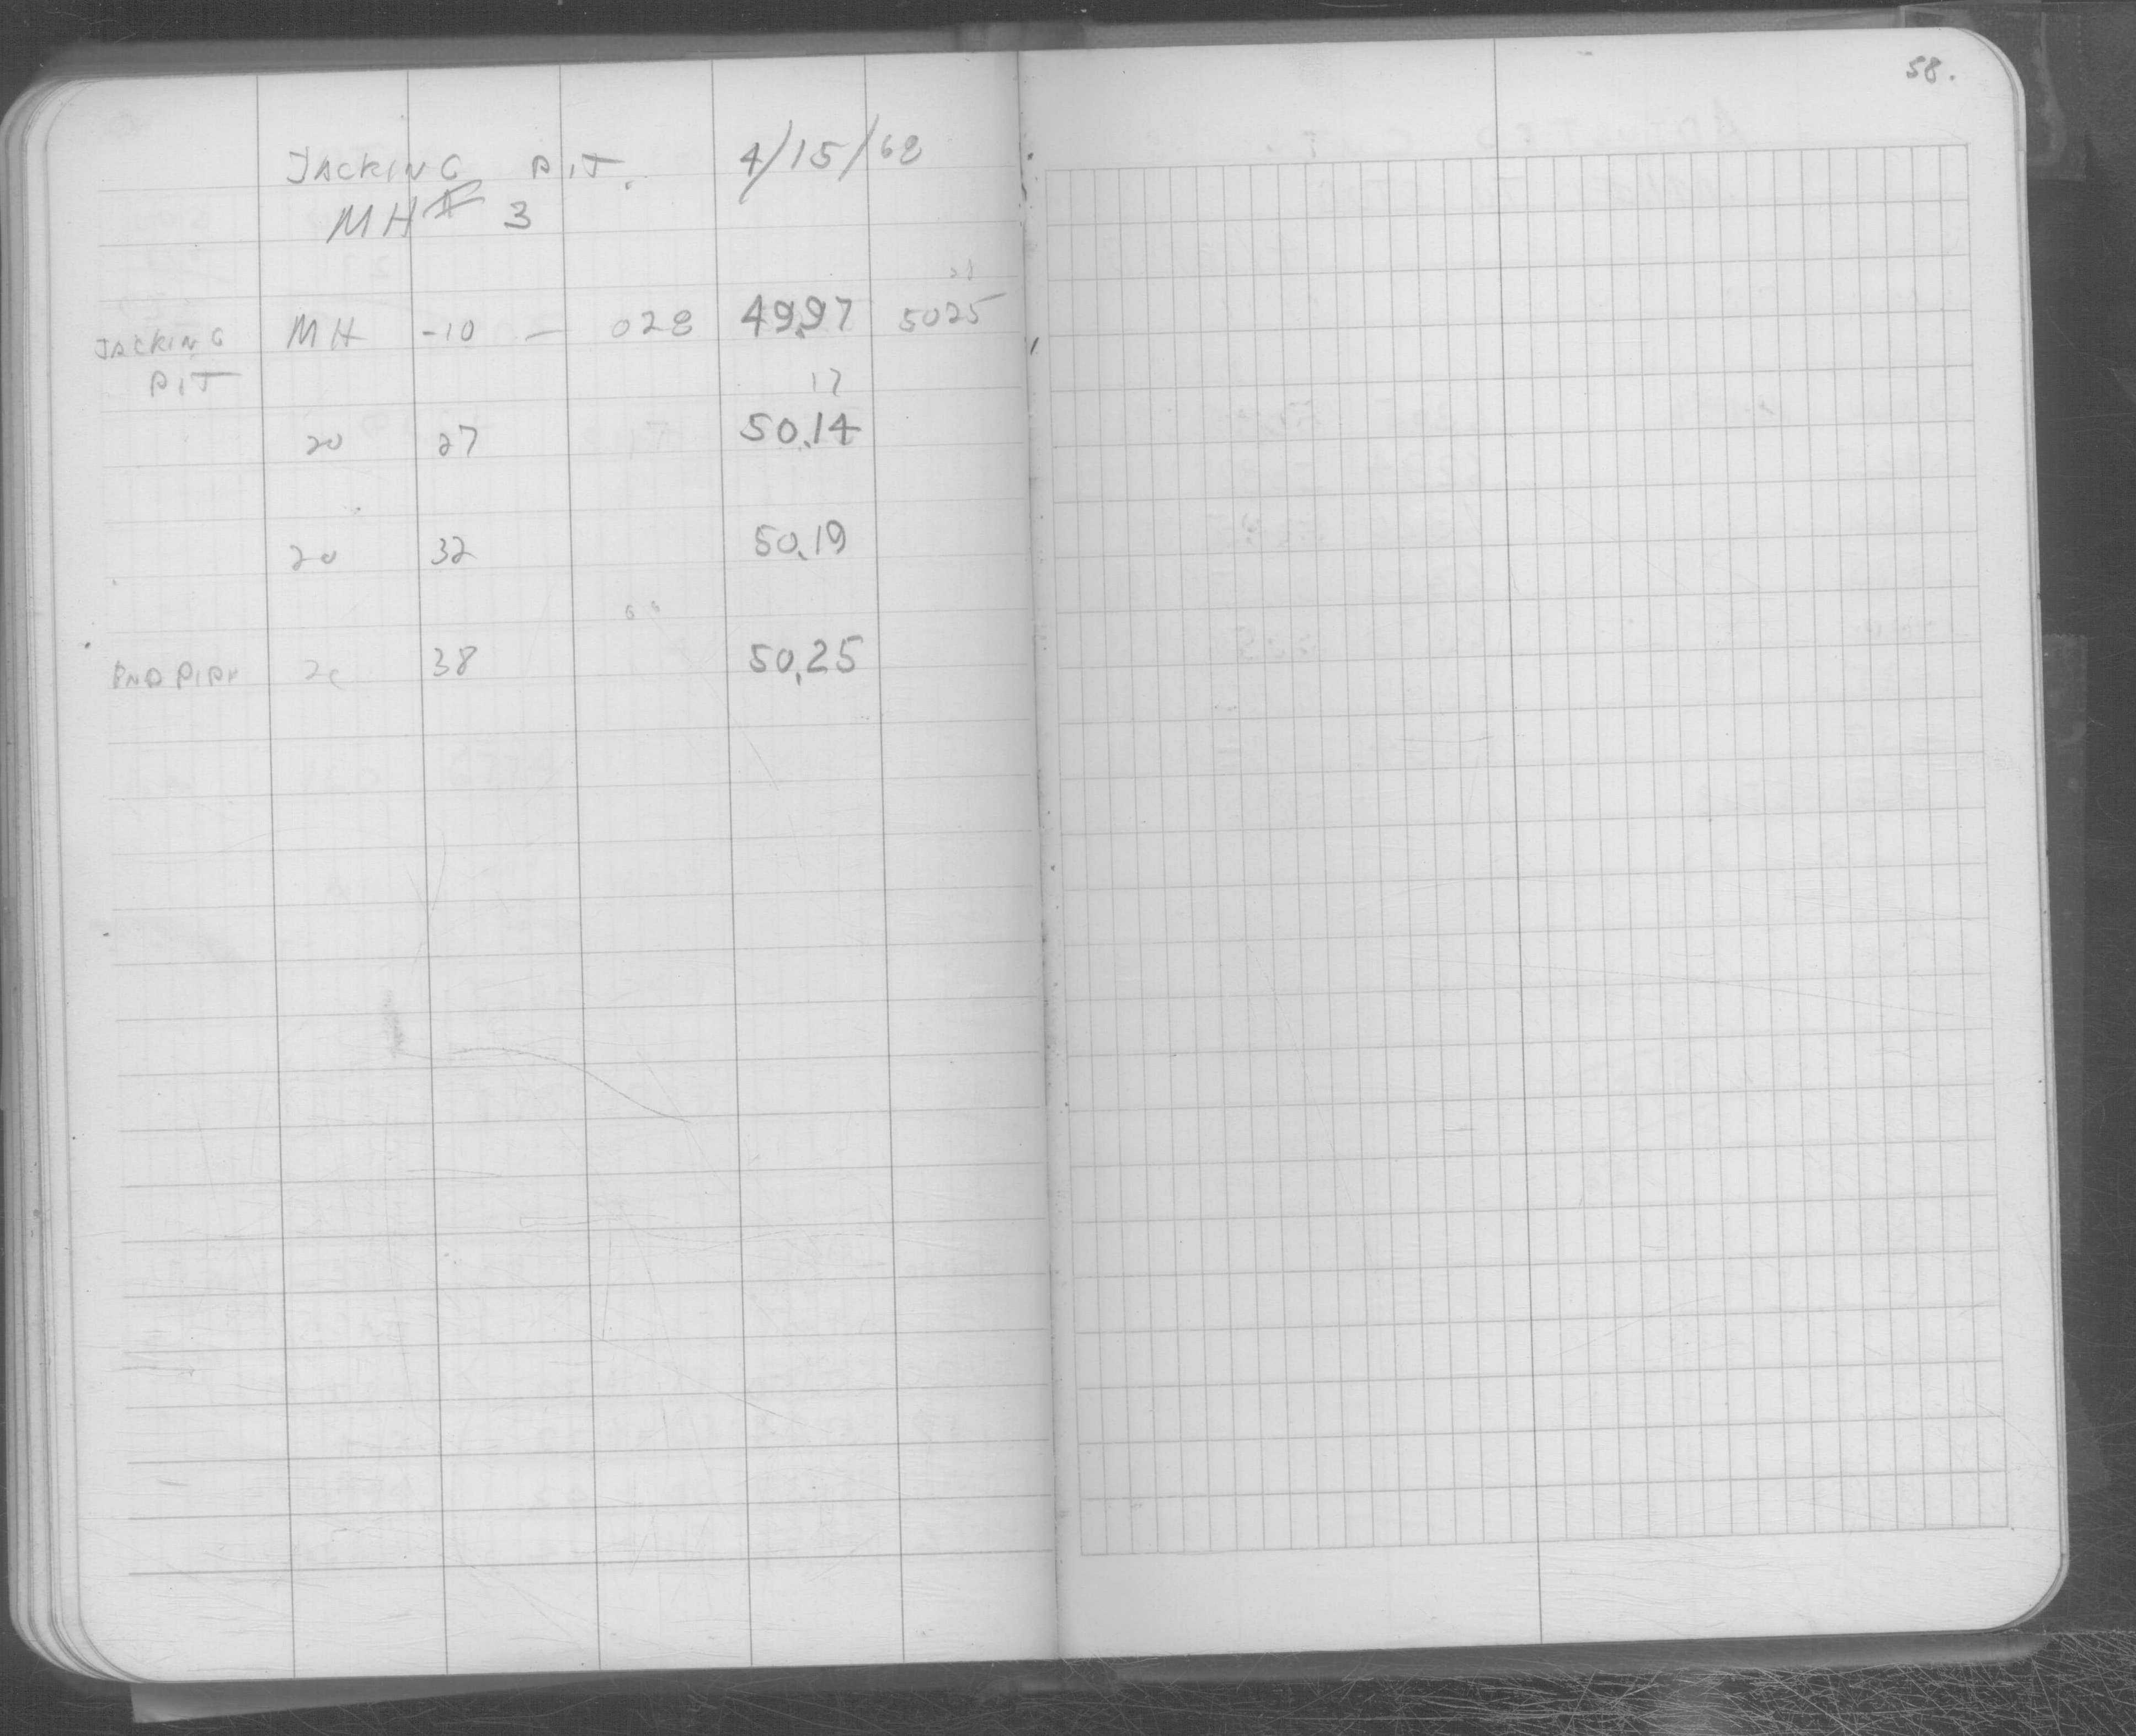 58.
JACKING PIT. 4/15/68
MH # 3
28
JACKING MH -10 — 028 49.97 5025
PIT 17
20 27 50.14
20 32 50.19
END PIPE 20 38 50.25